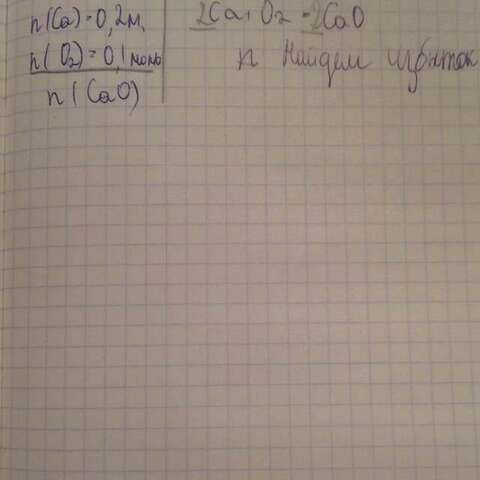 n(Ca)=0,2м.
n(O₂)=0,1моль
n(CaO)
2Ca+O₂=2CaO
n Найдем избыток